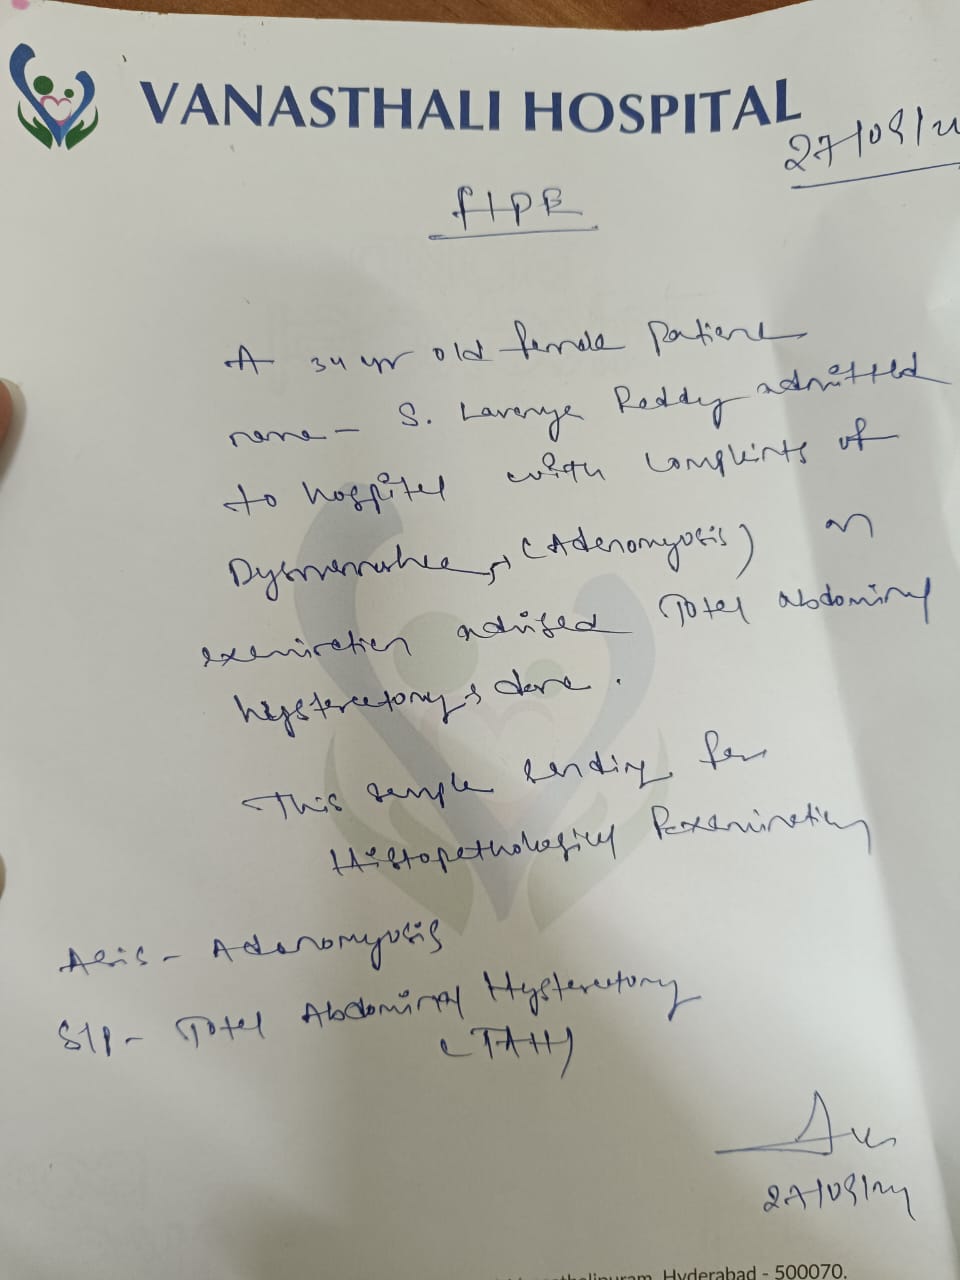 VANASTHALI HOSPITAL
27/09/2
HPE
A 34 yr old female Patient
name - S. Lavanya Reddy admitted
to hospital with complaints of
Dysmenorrhea, (Adenomyosis) on
examination advised Total abdominal
hysterectomy done.
This sample sending for
Histopathological Examination
- Adenomyosis
S/p - Total Abdominal Hysterectomy
(TAH)
27/09/24
Hyderabad - 500070.